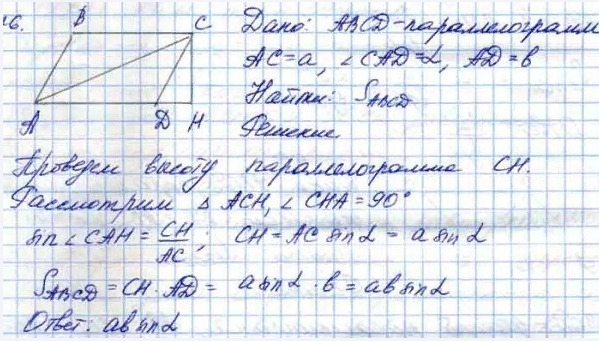 16.
B
C
A
D
H
Дано: ABCD-параллелограмм
AC=a, ∠CAD=α, AD=b
Найти: S_ABCD
Решение
Проведем высоту параллелограмма CH.
Рассмотрим △ ACH, ∠ CHA = 90°
sin ∠ CAH = CH/AC ; CH = AC sin α = a sin α
S_ABCD = CH · AD = a sin α · b = ab sin α
Ответ: ab sin α